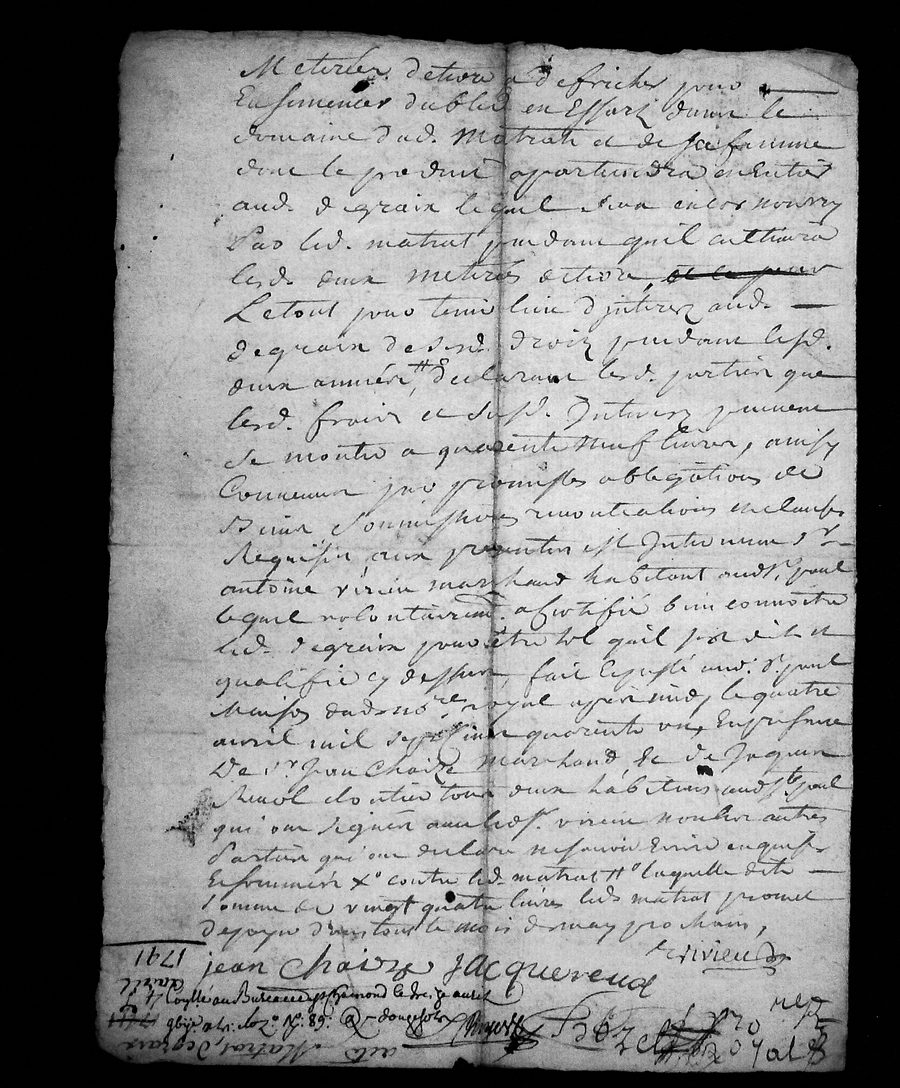 Meterées de terre a defricher pour
Ensemencer du bled en Essart dans le
domaine dud. Matrat et de sa famme
dont le produit apartiendra en Entier
aud. degraix lequel sera encor nourry
Par led. matrat pendant quil cultivera
lesd. deux meterées de terre
Le tout pour tenir lieu d'interez aud.
degraix de sesd. droiz pendant lesd.
deux années, declarant lesd. parties que
lesd. fraix et susd. Interez peuvent
se monter a quarente neuf livres, ainsy
Convenu par promesses obligations de
Biens soumissions renontiations et clauses
Requises, aux presentes est Intervenu Sr
antoine virieu marchand habitant aud St. paul
lequel volontairemt. a Certiffié bien connoitre
led. degraix pour être tel quil s'est dit et
qualifié cy dessus fait et passé aud. St. paul
Maison dud. nore. royal apres midy le quatre
avril mil sept cent quarente un, En presence
De sr. Jean Chaize marchand & de Jaques
Reuol cloutier tous deux habitans aud St. paul
qui ont signés avec led Sr. virieu non les autres
Parties qui ont declaré ne savoir Ecrire enquis
Et sommés Xo contre led. matrat #o laquelle dite
somme de vingt quatre livres led. matrat promet
de payer dans tout le mois de may prochain,
Virieu
jean Chaize Jacque reuol
Conllé au Bureau de St. hemond le treize avril
1741 a. fo. No. 89. R. douze sols
nore.
1741
avril
4
Matrat, degraix